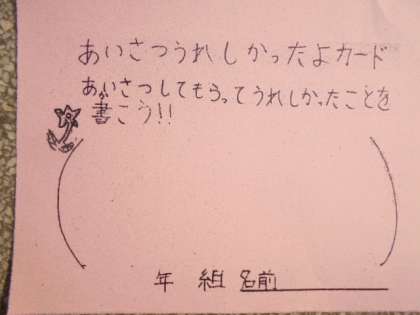 あいさつうれしかったよカード
あいさつしてもらってうれしかったことを
書こう!!
年 組 名前